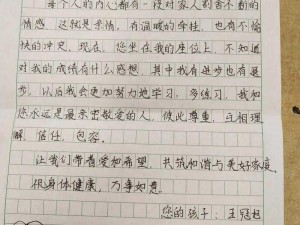 每个人的内心都有一段对家人割舍不断的
情感，这就是亲情，有温暖的牵挂，也有不愉
快的冲突，现在，您坐在我的座位上，不知道
对我的成绩有什么感想，其中我有进步也有退
步，以后我会更加努力地学习，多练习，我和
您永远是最亲密敬爱的人，彼此尊重，互相理
解，信任，包容。
让我们带着爱和希望，共筑和谐与美好家庭
祝身体健康，万事如意。
您的孩子：王冠